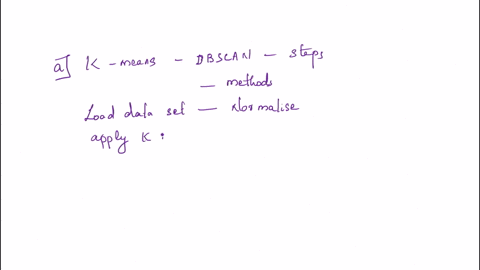 a] K - means - DBSCAN - steps
- methods
Load data set - Normalise
apply K :